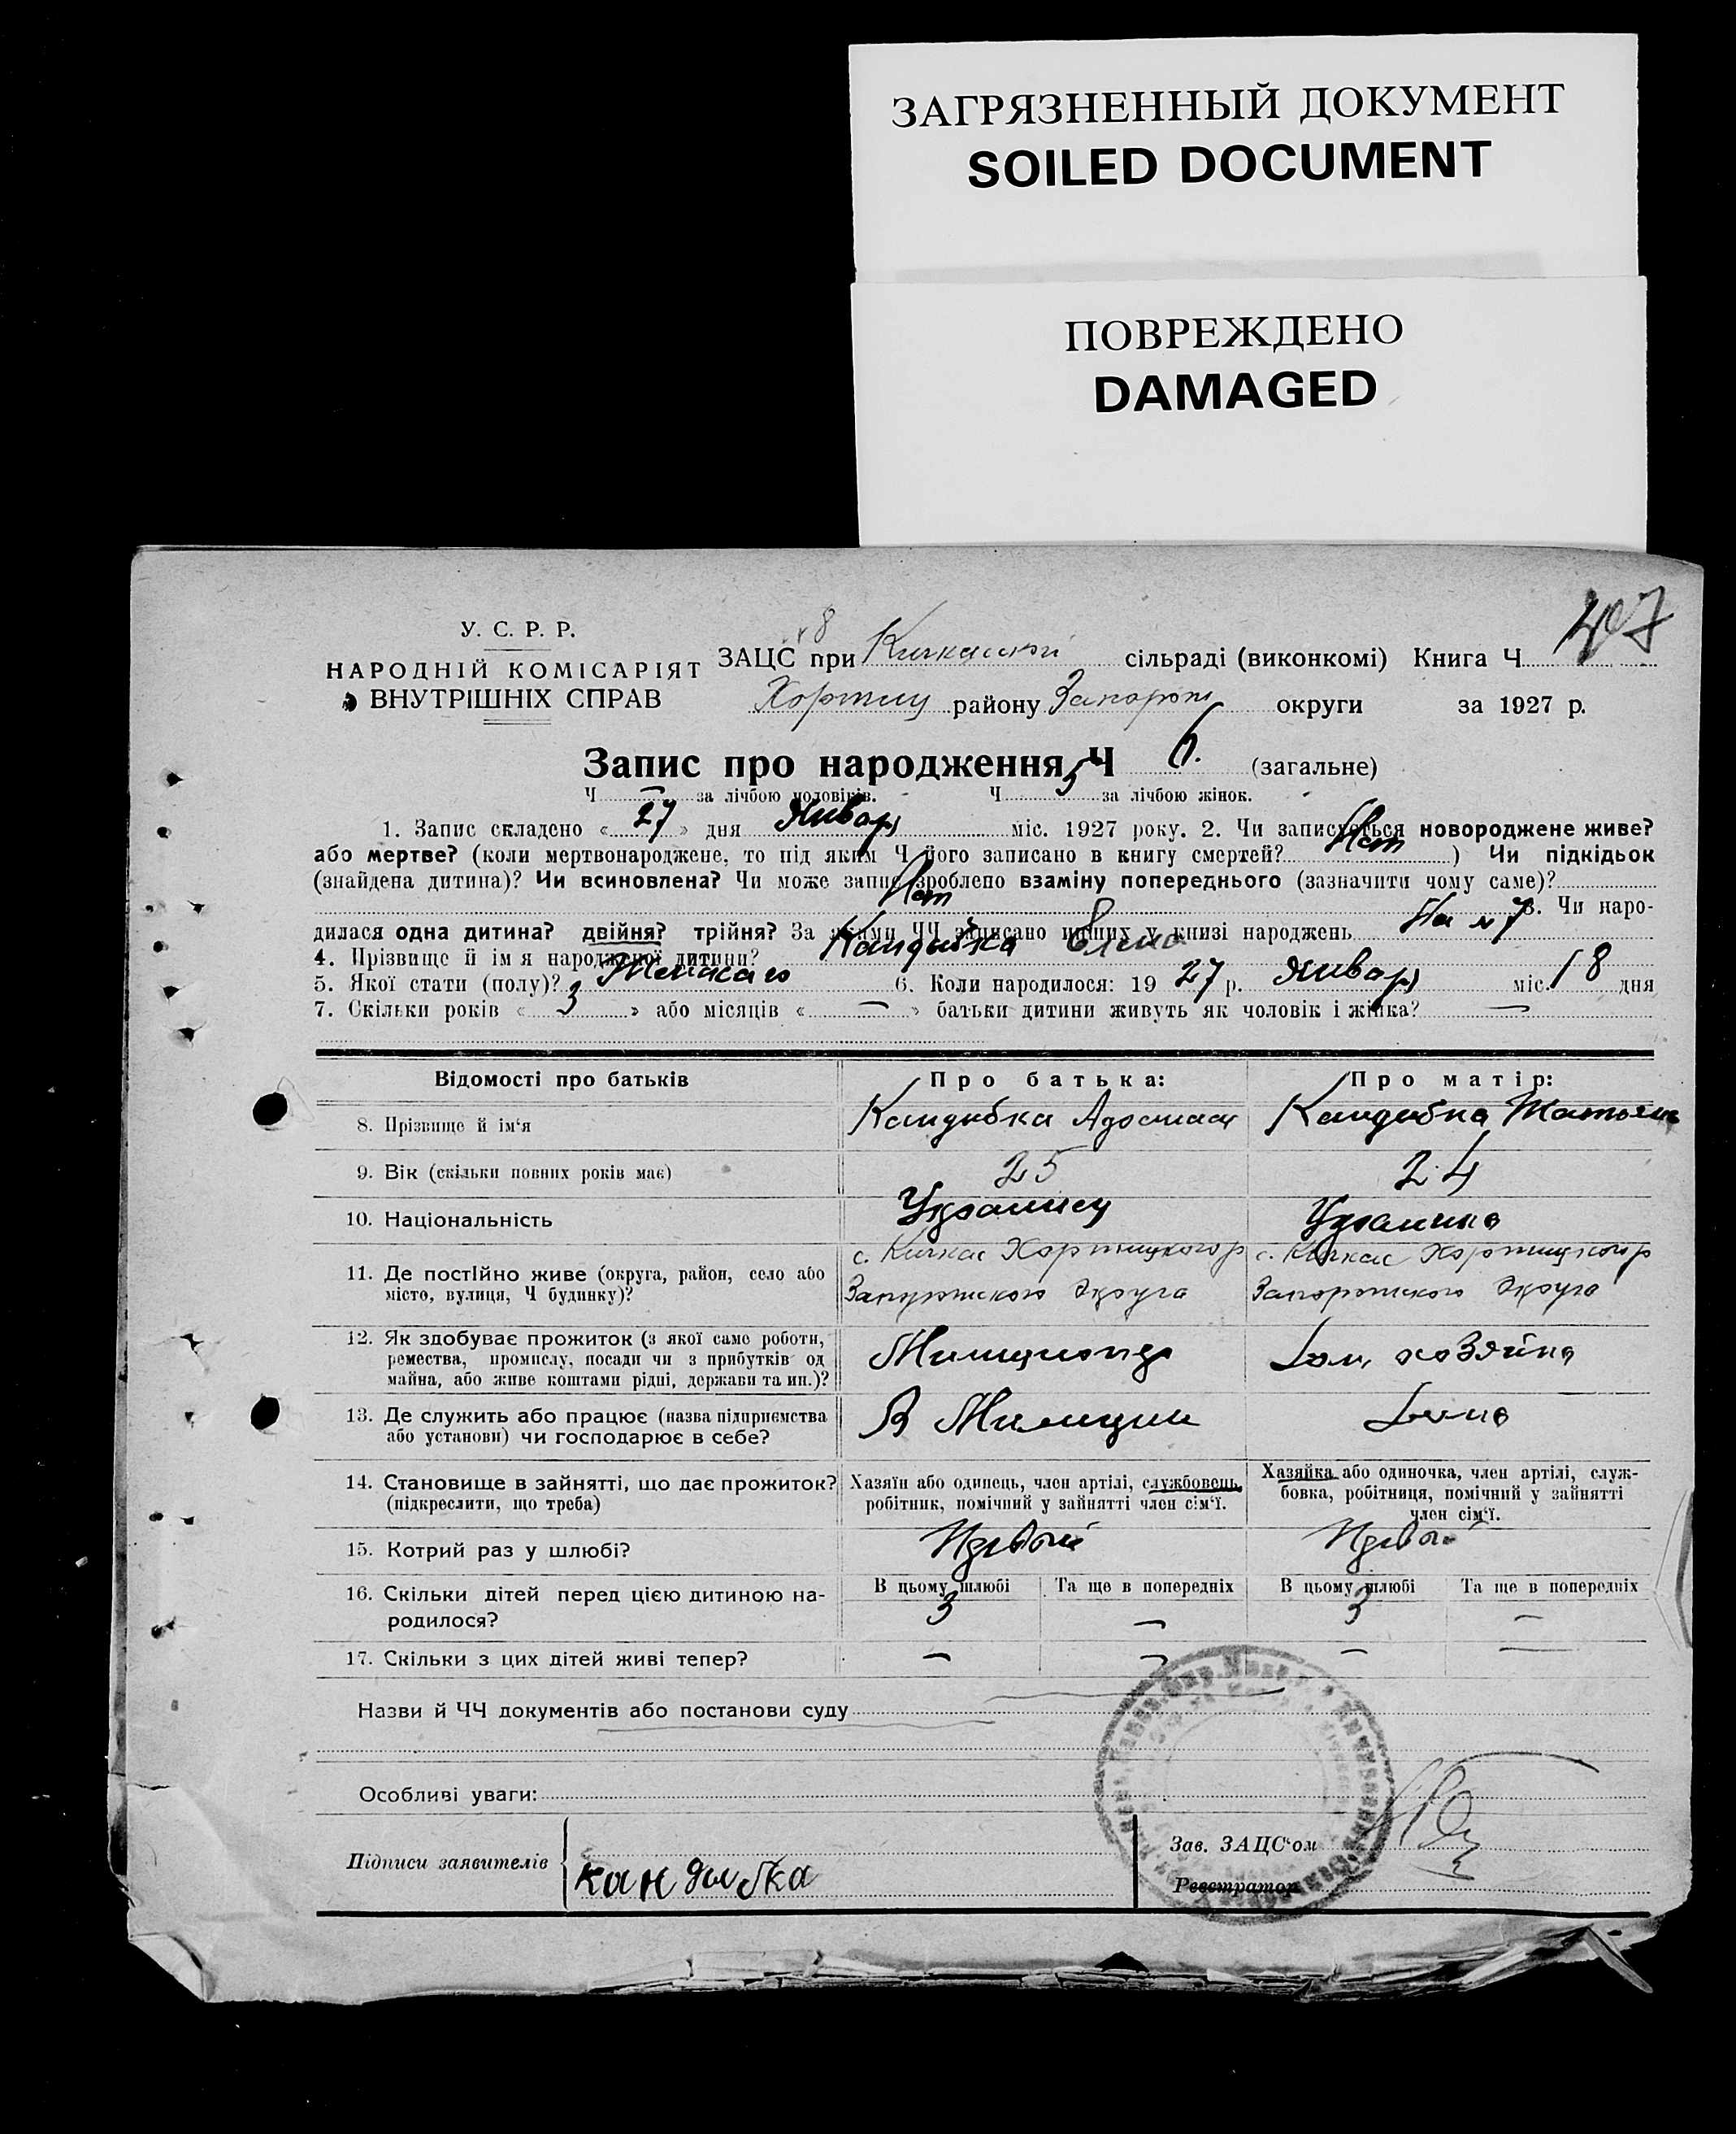 ЗАГРЯЗНЕННЫЙ ДОКУМЕНТ
SOILED DOCUMENT
ПОВРЕЖДЕНО
DAMAGED
У. С. Р. Р.
НАРОДНІЙ КОМІСАРІЯТ
ВНУТРІШНІХ СПРАВ
8
ЗАЦС при Кичкаской сільраді (виконкомі) Книга Ч
Хортиц району Запорож округи за 1927 р.
Запис про народження Ч 6. (загальне)
Ч — за лічбою чоловіків. Ч 5 за лічбою жінок.
1. Запис складено « 27 » дня Январ міс. 1927 року. 2. Чи записується новороджене живе?
або мертве? (коли мертвонароджене, то під яким Ч його записано в книгу смертей? Нет ) Чи підкідьок
(знайдена дитина)? Чи всиновлена? Чи може запис зроблено взаміну попереднього (зазначити чому саме)?
Нет 3. Чи наро-
дилася одна дитина? двійня? трійня? За якими ЧЧ записано инших у книзі народжень На № 7
4. Прізвище й ім'я народженої дитини? Кандыбка Елена
5. Якої стати (полу)? Женскаго 6. Коли народилося: 19 27 р. Январ міс. 18 дня
7. Скільки років « 3 » або місяців « — » батьки дитини живуть як чоловік і жінка? —
Відомості про батьків Про батька: Про матір:
8. Прізвище й ім'я Кандыбка Кандыбка Татьяна
9. Вік (скільки повних років має) 25 24
10. Національність Украинец Украинка
11. Де постійно живе (округа, район, село або
місто, вулиця, Ч будинку)?
с. Кичкас Хортицкого р
Запорожского Округа
с. Кичкас Хортицкого р
Запорожского Округа
12. Як здобуває прожиток (з якої саме роботи,
ремества, промислу, посади чи з прибутків од
майна, або живе коштами рідні, держави та ин.)?
Милиционер
Дом. хозяйка
13. Де служить або працює (назва підприємства
або установи) чи господарює в себе?
В Милиции
Дома
14. Становище в зайнятті, що дає прожиток?
(підкреслити, що треба)
Хазяїн або одинець, член артілі, службовець,
робітник, помічний у зайнятті член сім'ї.
Хазяйка або одиночка, член артілі, служ-
бовка, робітниця, помічний у зайнятті
член сім'ї.
15. Котрий раз у шлюбі? Первый Первый
16. Скільки дітей перед цією дитиною на-
родилося?
В цьому шлюбі Та ще в попередніх В цьому шлюбі Та ще в попередніх
3 — 3 —
17. Скільки з цих дітей живі тепер? — — — —
Назви й ЧЧ документів або постанови суду
Особливі уваги:
Підписи заявителів
Кандыбка
Зав. ЗАЦС'ом
Реєстратор